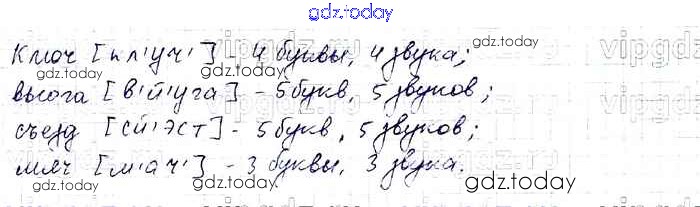 gdz.today
Ключ [кл'уч'] - 4 буквы, 4 звука;
вьюга [в'й'уга] - 5 букв, 5 звуков;
съезд [сй'эст] - 5 букв, 5 звуков;
мяч [м'ач'] - 3 буквы, 3 звука.
gdz.today
gdz.today
gdz.today
gdz.today
gdz.today
gdz.today